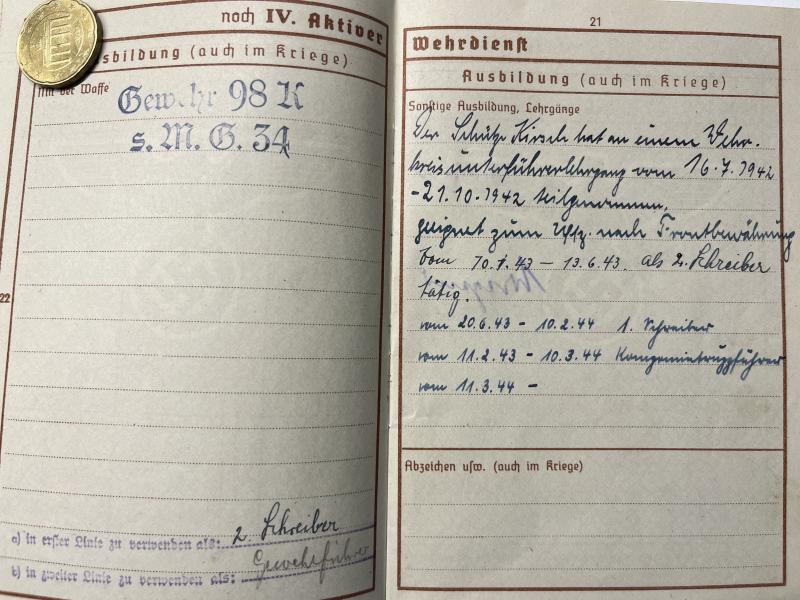 noch IV. Aktiver
usbildung (auch im Kriege)
Mit der Waffe
Gewehr 98 K
s. M. G. 34
22
a) in erster Linie zu verwenden als: 2. Schreiber
b) in zweiter Linie zu verwenden als: Gewehrführer
21
Wehrdienst
Ausbildung (auch im Kriege)
Sonstige Ausbildung, Lehrgänge
Der Schütze Kirsch hat an einem Wehr-
kreisunterführerlehrgang vom 16.7.1942
-21.10.1942 teilgenommen.
geeignet zum Uffz. nach Frontbewährung
Vom 10.1.43 - 13.6.43 als 2. Schreiber
tätig.
vom 20.6.43 - 10.2.44 1. Schreiber
vom 11.2.43 - 10.3.44 Kompanietruppführer
vom 11.3.44 -
Abzeichen usw. (auch im Kriege)